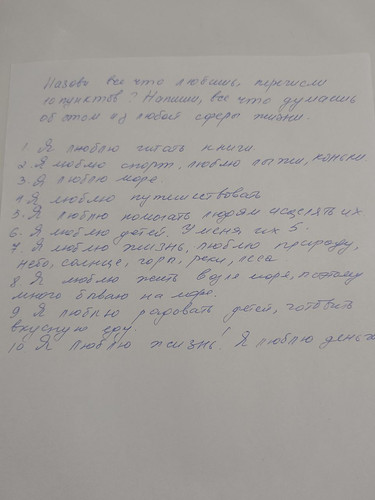 Назови все что любишь, перечисли
10 пунктов? Напиши, все что думаешь
об этом из любой сферы жизни.
1. Я люблю читать книги
2. Я люблю спорт, люблю лыжи, коньки.
3. Я люблю море.
4. Я люблю путешествовать
5. Я люблю помогать людям исцелять их.
6. Я люблю детей. У меня их 5.
7. Я люблю жизнь, люблю природу,
небо, солнце, горы. реки, леса
8 Я люблю жить возле моря, поэтому
много бываю на море.
9 Я люблю радовать детей, готовить
вкусную еду.
10 Я люблю жизнь! Я люблю деньги